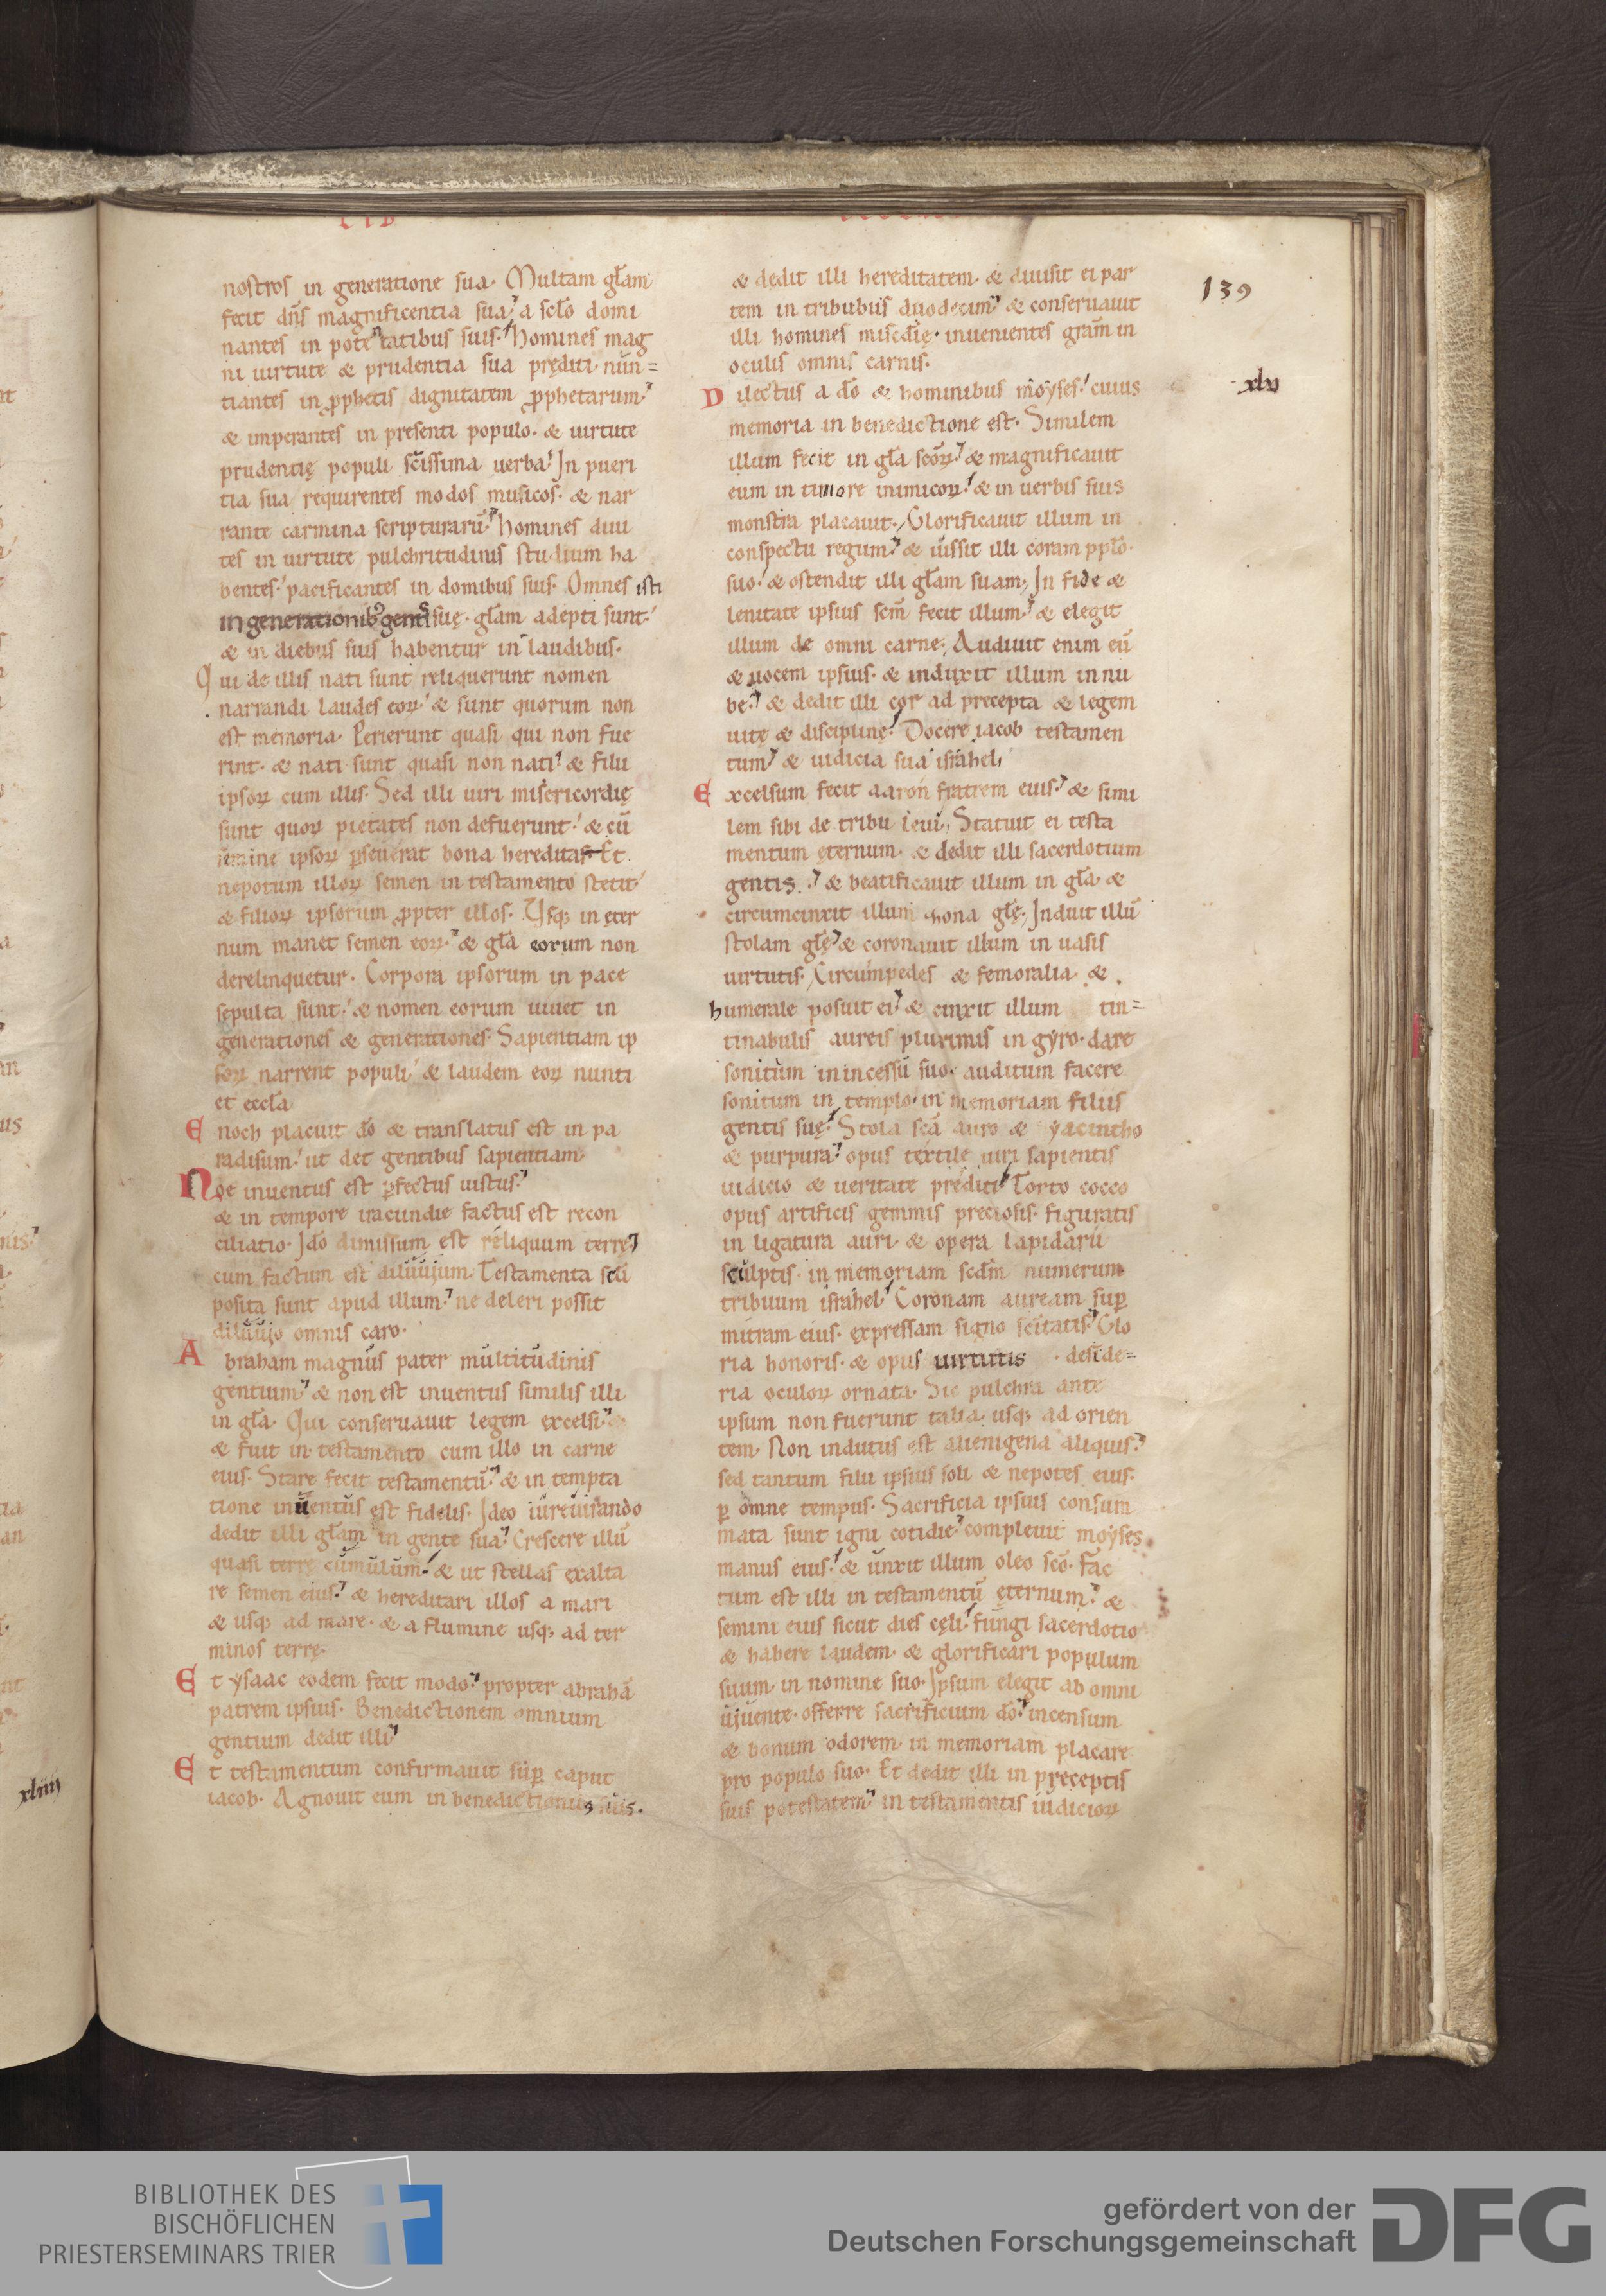 LIB
nostros in generatione sua. Multam gl̄am
fecit dn̄s magnificentia sua; a scl̄o domi
nantes in potentatibus suis. homines mag
ni uirtute & prudentia sua pręditi. nun=
tiantes in ꝓphetis dignitatem ꝓphetarum.
& imperantes in presenti populo. & uirtute
prudentię populi sc̄issima uerba. In pueri
tia sua requirentes modos musicos. & nar
rante carmina scripturarū. homines diui
tes in uirtute pulchritudinis studium ha
bentes. pacificantes in domibus suis. Omnes isti
in generationib; suę. gl̄am adepti sunt.
& in diebus suis habentur in laudibus.
Qui de illis nati sunt reliquerunt nomen
narrandi laudes eoꝝ. & sunt quorum non
est memoria. Perierunt quasi qui non fue
rint. & nati sunt quasi non nati. & filii
ipsoꝝ cum illis. Sed illi uiri misericordię
sunt quoꝝ pietates non defuerunt. & cū
semine ipsoꝝ ꝑseuerat bona hereditas Et
nepotum illoꝝ semen in testamento stetit
& filioꝝ ipsorum ꝓpter illos. Vsq; in ęter
num manet semen eoꝝ. & gl̄a eorum non
derelinquetur. Corpora ipsorum in pace
sepulta sunt. & nomen eorum uiuet in
generationes & generationes. Sapientiam ip
soꝝ narrent populi & laudem eoꝝ nunti
et eccl̄a
Enoch placuit dō & translatus est in pa
radisum. ut det gentibus sapientiam
Noe inuentus est ꝑfectus iustus.
& in tempore iracundie factus est recon
ciliatio. Ido dimissum est reliquum terre
cum factum est diluuium. Testamenta scl̄i
posita sunt apud illum. ne deleri possit
diluuio omnis caro.
Abraham magnus pater multitudinis
gentium. & non est inuentus similis illi
in gl̄a. Qui conseruauit legem excelsi
& fuit in testamento cum illo in carne
eius. Stare fecit testamentū. & in tempta
tione inuentus est fidelis. Ideo iureiurando
dedit illi gl̄am in gente sua. Crescere illū
quasi terrę cumulum. & ut stellas exalta
re semen eius. & hereditari illos a mari
& usq; ad mare. & a flumine usq; ad ter
minos terrę.
Et ysaac eodem fecit modo. propter abrahā
patrem ipsius. Benedictionem omnium
gentium dedit illi
Et testamentum confirmauit suꝑ caput
iacob. Agnouit eum in benedictionibus suis.
& dedit illi hereditatem. & diuisit ei par
tem in tribubus duodecim. & conseruauit
illi homines miscd̄ię. inuenientes grām in
oculis omnis carnis.
Dilectus a dō & hominibus moyses. cuius
memoria in benedictione est. Similem
illum fecit in gl̄a scōꝝ. & magnificauit
eum in timore inimicoꝝ. & in uerbis suis
monstra placauit. Glorificauit illum in
conspectu regum. & iussit illi coram ppl̄o.
suo. & ostendit illi gl̄am suam. In fide &
lenitate ipsius scm̄ fecit illum. & elegit
illum de omni carne. Audiuit enim eū
& uocem ipsius. & induxit illum in nu
be. & dedit illi cor ad precepta & legem
uitę & disciplinę. Docere iacob testamen
tum. & iudicia sua israhel
Excelsum fecit aaron fratrem eius. & simi
lem sibi de tribu leui. Statuit ei testa
mentum ęternum. & dedit illi sacerdotium
gentis. & beatificauit illum in gl̄a. &
circumcinxit illum zona gl̄ę. Induit illū
stolam gl̄ę & coronauit illum in uasis
uirtutis. Circumpedes & femoralia. &
humerale posuit ei. & cinxit illum tin=
tinabulis aureis plurimis in gyro. dare
sonitum in incessu suo. auditum facere
sonitum in templo. in memoriam filiis
gentis suę. Stola scā auro & yacintho
& purpura. opus textile uiri sapientis
iudicio & ueritate prediti Torto cocco
opus artificis gemmis preciosis. figuratis
in ligatura auri. & opera lapidarii
sculptis. in memoriam scdm̄ numerum
tribuum israhel. Coronam auream suꝑ
mitram eius. expressam signo scītatis. Glo
ria honoris. & opus uirtutis. deside=
ria oculoꝝ ornata. Sic pulchra ante
ipsum non fuerunt talia usq; ad orien
tem. Non indutus est alienigena aliquis.
sed tantum filii ipsius soli & nepotes eius.
ꝑ omne tempus. Sacrificia ipsius consum
mata sunt igni cotidie. compleuit moyses
manus eius. & unxit illum oleo scō. Fac
tum est illi in testamentū ęternum. &
semini eius sicut dies cęli. fungi sacerdotio
& habere laudem. & glorificari populum
suum in nomine suo. Ipsum elegit ab omni
uiuente. offerre sacrificium dō. incensum
& bonum odorem. in memoriam placare
pro populo suo. Et dedit illi in pręceptis
suis potestatem. in testamentis iudicioꝝ
139
xlv
xliiij
BIBLIOTHEK DES
BISCHÖFLICHEN
PRIESTERSEMINARS TRIER
gefördert von der
Deutschen Forschungsgemeinschaft
DFG